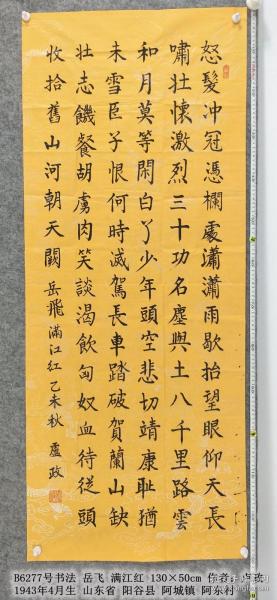 怒髮冲冠憑欄處瀟瀟雨歇抬望眼仰天長
嘯壯懷激烈三十功名塵與土八千里路雲
和月莫等閑白了少年頭空悲切靖康耻猶
未雪臣子恨何時滅駕長車踏破賀蘭山缺
壯志饑餐胡虜肉笑談渴飲匈奴血待從頭
收拾舊山河朝天闕 岳飛滿江紅 乙未秋 盧政
B6277号书法 岳飞 满江红 130×50cm 作者：卢政
1943年4月生 山东省 阳谷县 阿城镇 阿东村